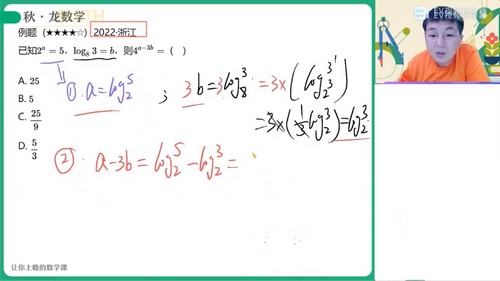 秋·龙数学
例题 (★★★★☆) 2022·浙江
已知2^a = 5, log_8 3 = b, 则4^{a-3b} = ( )
A. 25
B. 5
C. 25/9
D. 5/3
① a = log_2 5 ; 3b = 3log_8 3 = 3×(log_{2^3} 3^1)
= 3×(1/3 log_2 3) = log_2 3
② a-3b = log_2 5 - log_2 3 =
让你上瘾的数学课